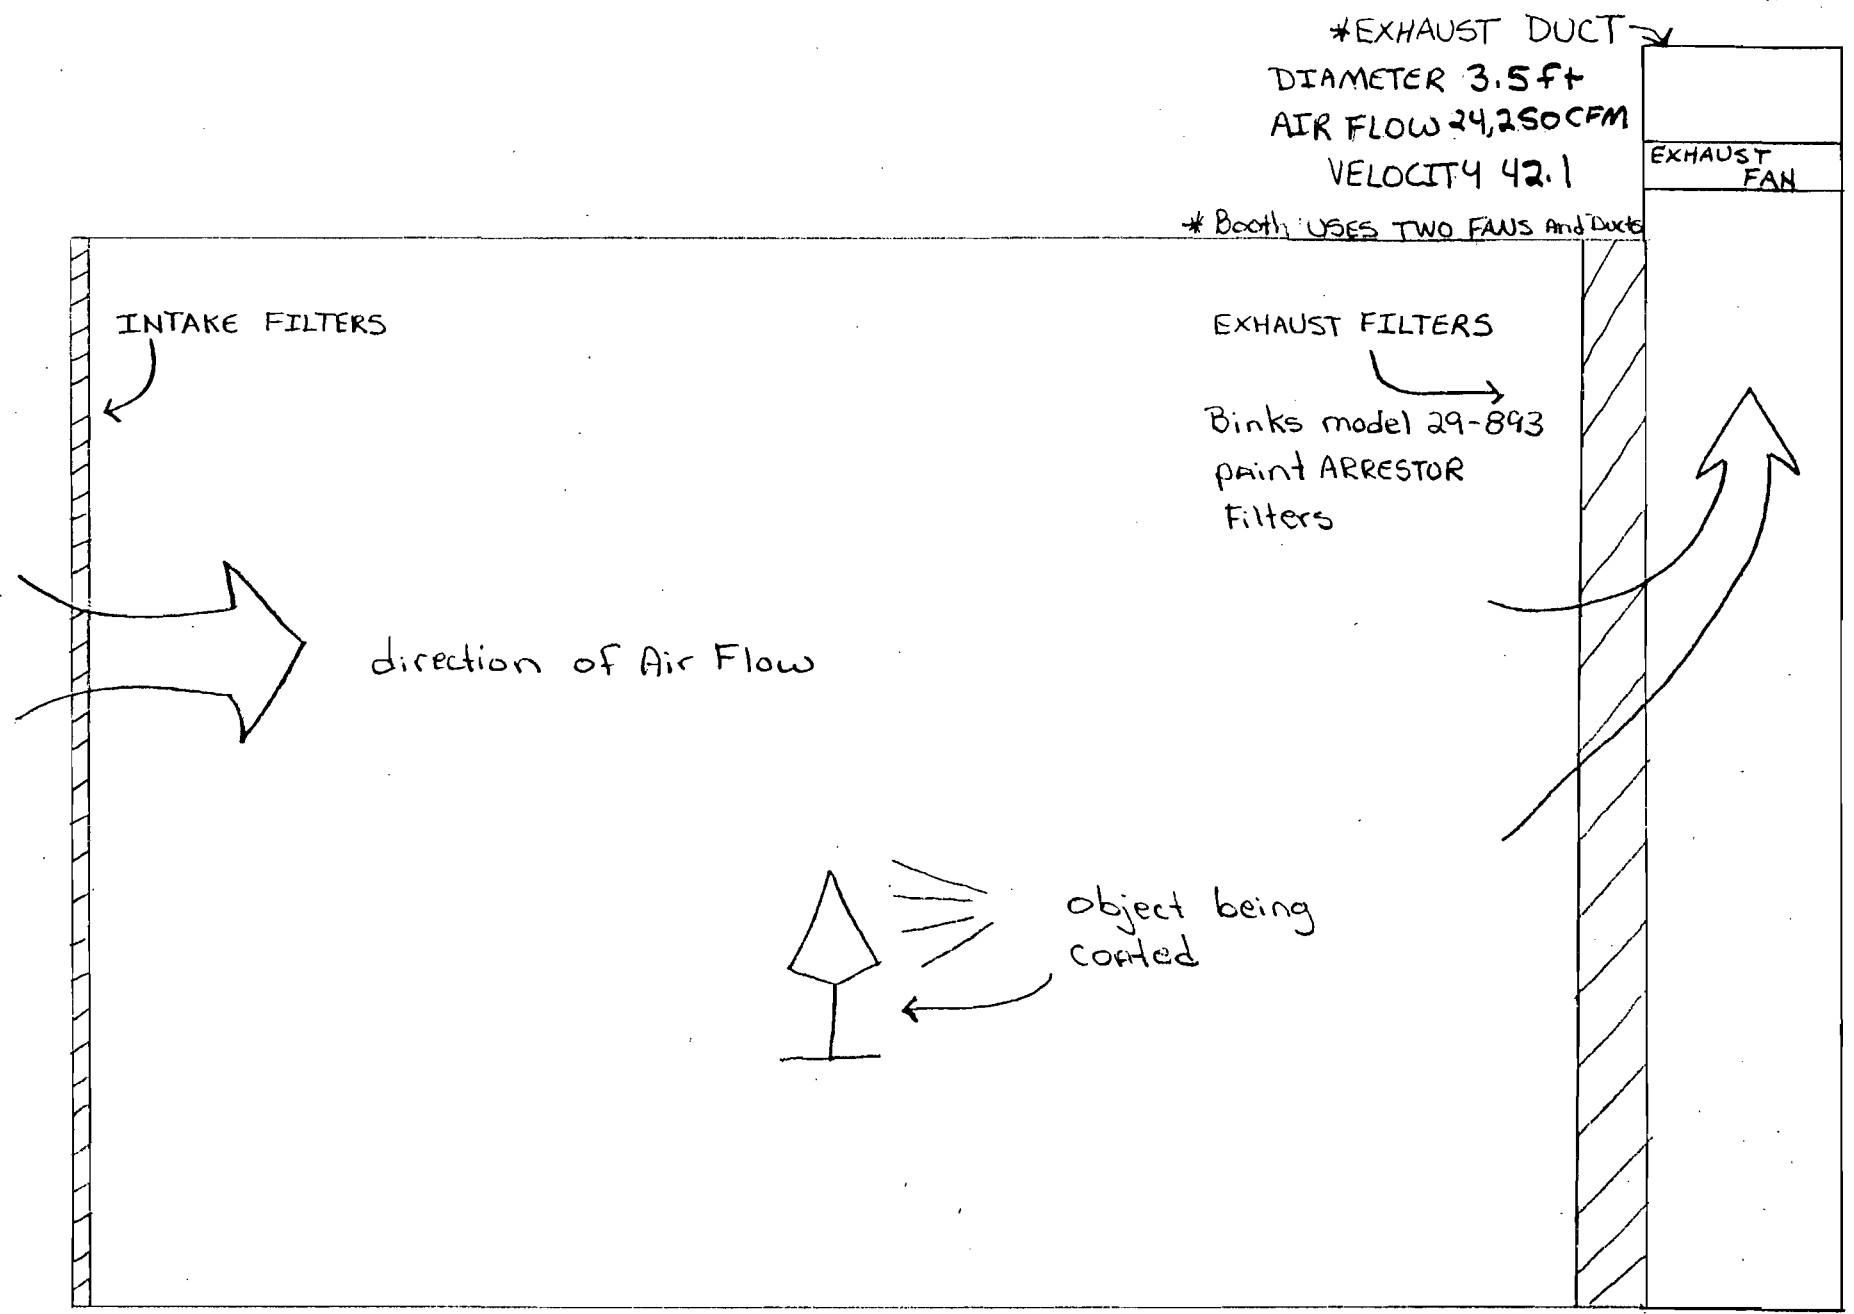 *EXHAUST DUCT
DIAMETER 3.5ft
AIR FLOW 24,250CFM
VELOCITY 42.1
EXHAUST
FAN
* Booth USES TWO FANS And Ducts
INTAKE FILTERS
EXHAUST FILTERS
Binks model 29-893
paint ARRESTOR
Filters
direction of Air Flow
object being
coated